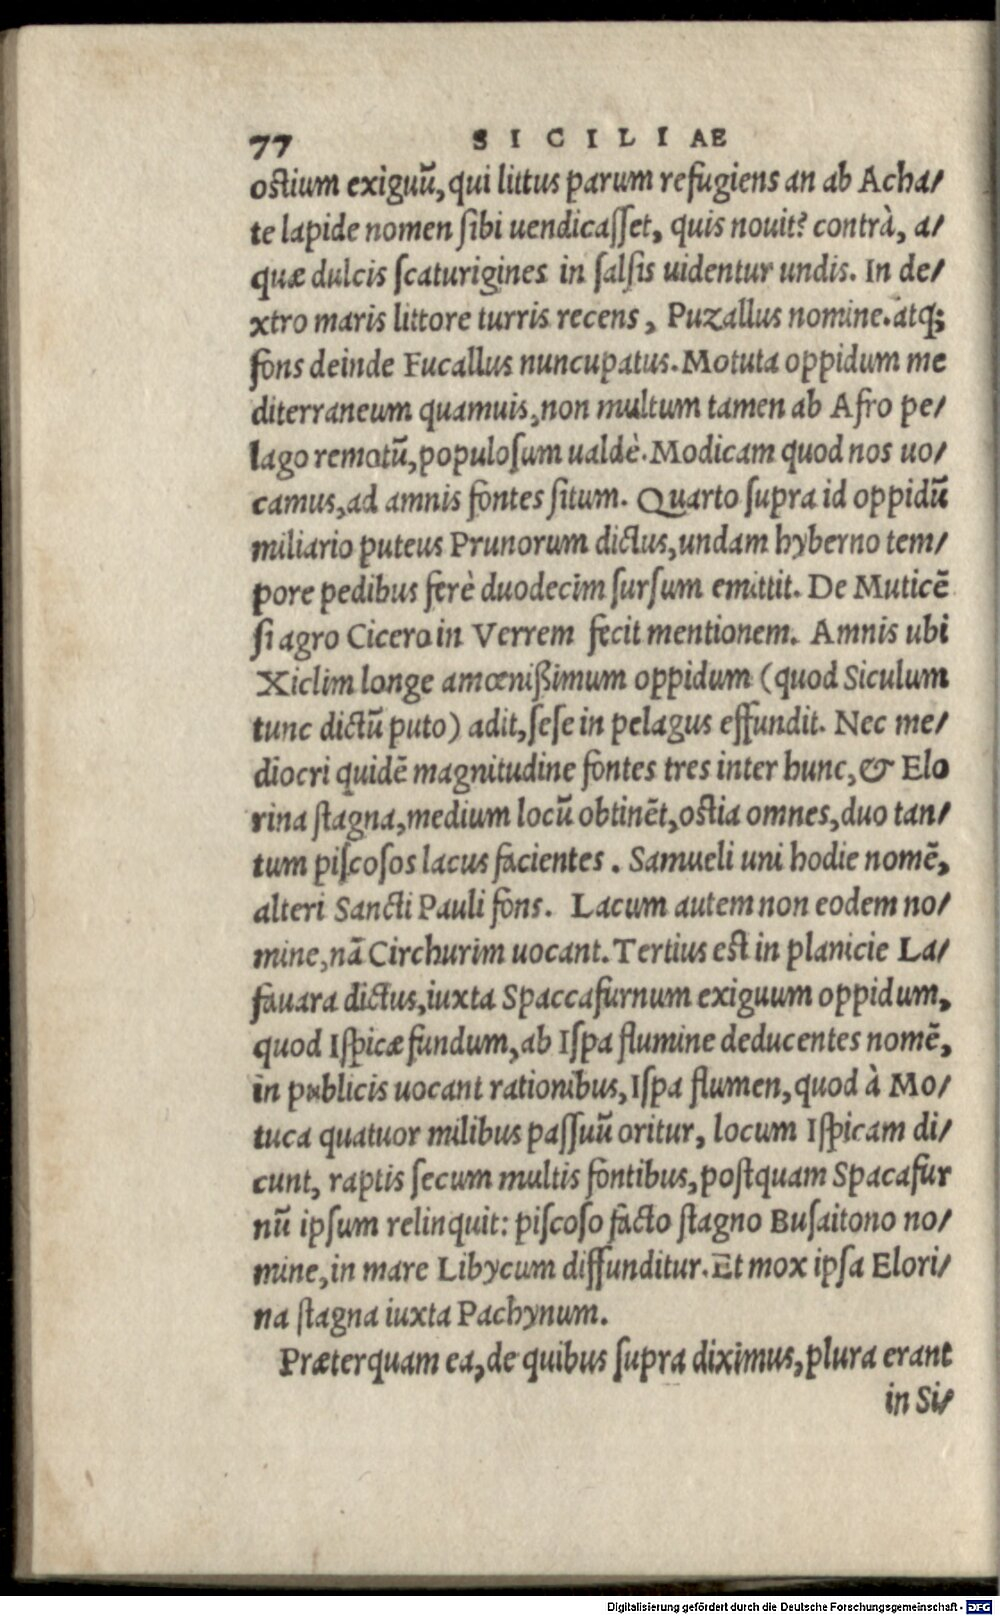 77 SICILIAE
ostium exiguũ, qui littus parum refugiens an ab Acha/
te lapide nomen ſibi uendicaſſet, quis nouit? contrà, a/
quæ dulcis ſcaturigines in ſalſis uidentur undis. In de/
xtro maris littore turris recens, Puzallus nomine. atq;
fons deinde Fucallus nuncupatus. Motuta oppidum me
diterraneum quamuis, non multum tamen ab Afro pe/
lago remotũ, populoſum ualdè. Modicam quod nos uo/
camus, ad amnis fontes ſitum. Quarto ſupra id oppidũ
miliario puteus Prunorum dictus, undam hyberno tem/
pore pedibus ferè duodecim ſurſum emittit. De Muticẽ
ſi agro Cicero in Verrem fecit mentionem. Amnis ubi
Xiclim longe amœnißimum oppidum (quod Siculum
tunc dictũ puto) adit, ſeſe in pelagus effundit. Nec me/
diocri quidẽ magnitudine fontes tres inter hunc, & Elo
rina ſtagna, medium locũ obtinẽt, ostia omnes, duo tan/
tum piſcoſos lacus facientes. Samueli uni hodie nomẽ,
alteri Sancti Pauli fons. Lacum autem non eodem no/
mine, nã Circhurim uocant. Tertius est in planicie La/
fauara dictus, iuxta Spaccafurnum exiguum oppidum,
quod Iſpicæ fundum, ab Iſpa flumine deducentes nomẽ,
in publicis uocant rationibus, Iſpa flumen, quod à Mo/
tuca quatuor milibus paſſuũ oritur, locum Iſpicam di/
cunt, raptis ſecum multis fontibus, poſtquam Spacafur
nũ ipſum relinquit: piſcoſo facto ſtagno Buſaitono no/
mine, in mare Libycum diffunditur. Et mox ipſa Elori/
na ſtagna iuxta Pachynum.
Præterquam ea, de quibus ſupra diximus, plura erant
in Si/
Digitalisierung gefördert durch die Deutsche Forschungsgemeinschaft - DFG